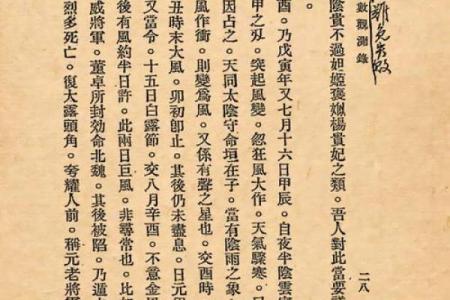 數觀測錄
二八
陰貴不過妲姬褒姒楊貴妃之類。吾人對此當要
。
酉。乃戊寅年又七月十六日甲辰。自夜半陰雲
甲之刄。突起風變。忽狂風大作。天氣驟寒。
因占之。天同太陰守命垣在子。當有陰雨之象。
風作衝。則變為風。又係有聲之星也。交酉時
丑時末大風。卯初卽止。其後仍未盡息。日元
又當令。十五日白露節。交八月辛酉。不意金
後有風約半日許。此兩日巨風。非尋常也。比
威將軍。董卓所封効命北魏。其後被陷。乃遁
烈多死亡。復大露頭角。夸耀人前。稱元老將